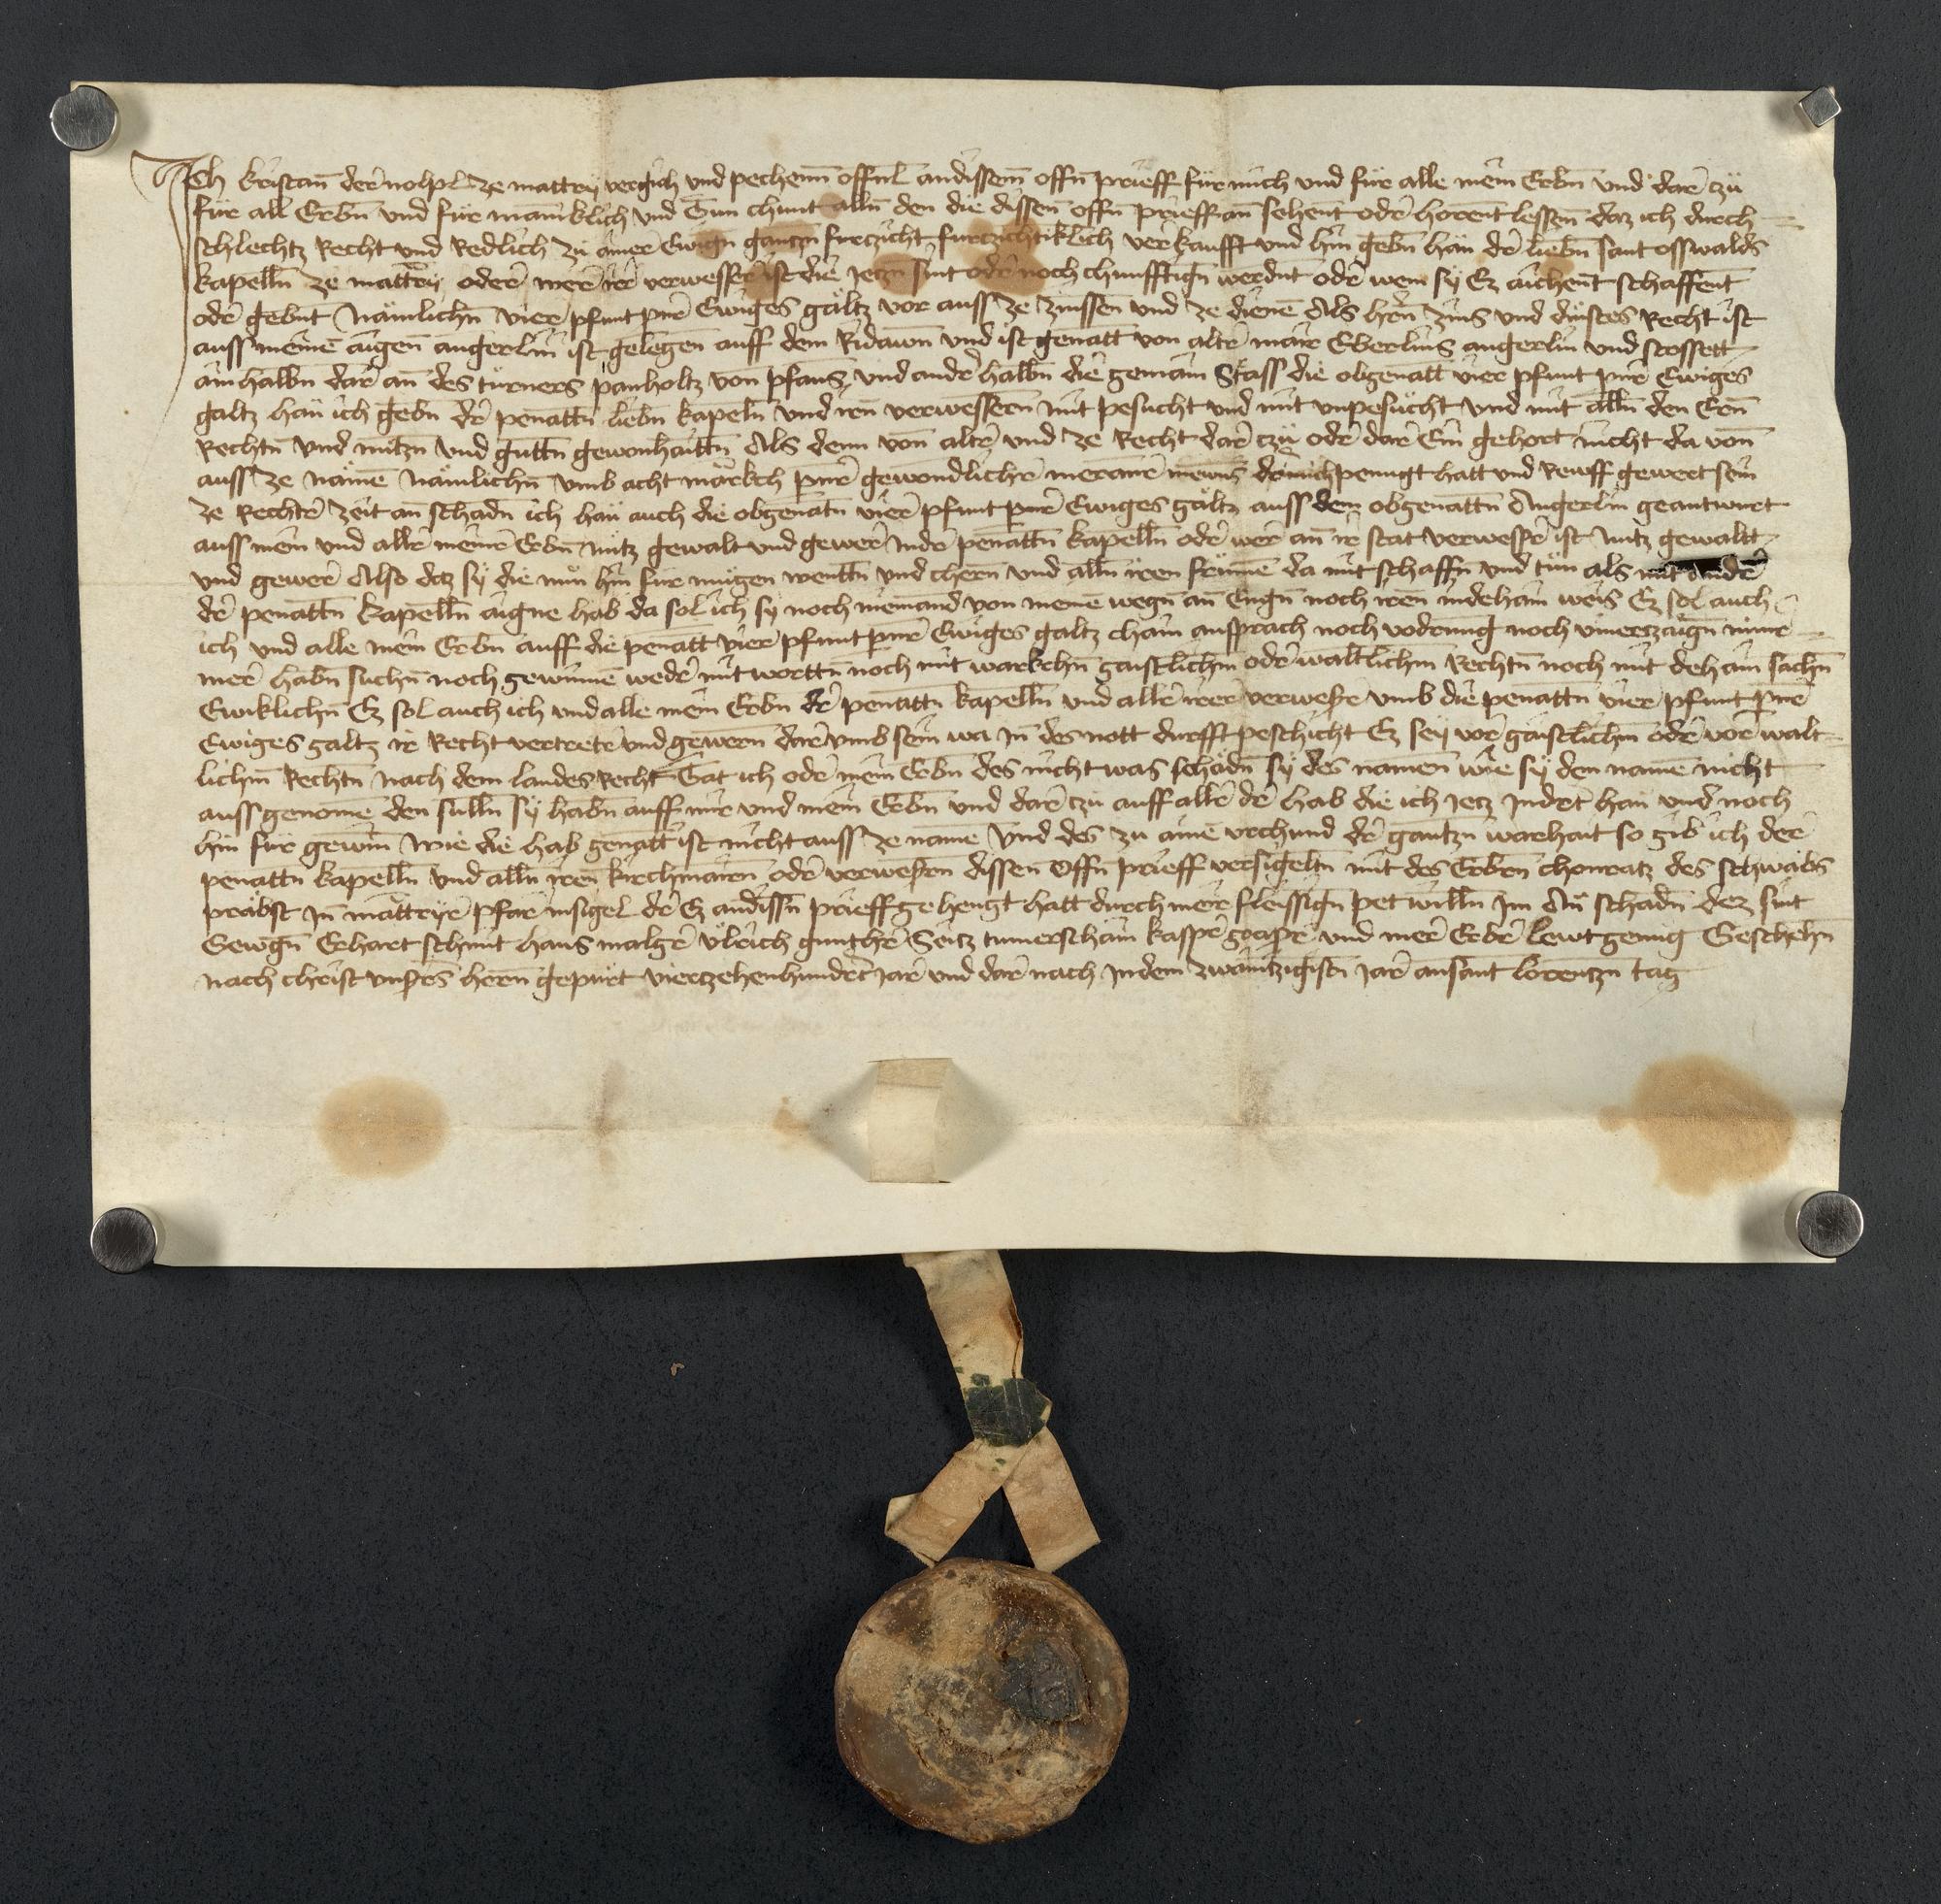 Ich kristan̄ der nolpl ze mattrÿ vergich vnd pechenn̄ offnl̄ an dissem̄ offn̄ prieff für mich vnd für alle mein Erbn̄ vnd dar czü
für all Erbn̄ vnd für maniklich vnd Tun chunt alln̄ den die dissen̄ offn̄ prieff an sehent oder horent lessen daz ich durch
schlechtz Recht vnd Redlich zü ainer Ewign̄ gantzn̄ furczicht furczichtiklich verkaufft vnd hin gebn̄ han der liebn̄ sant osswalds
kapelln̄ ze mattrÿ oder wer ir verwesser ist die jetzn̄ sint oder noch chunfftign̄ werdnt oder wem sÿ Ez aichent schaffent
oder gebn̄t Nämlichn̄ vier pfunt pnr̄ Ewiges gältz vor auss ze zinssen vnd ze dienē Als hrn̄ zins vnd dinstes Recht ist
auss meinē aigen̄ angerlin ist gelegen auff dem Ridawn̄ vnd ist genatt von alter mair Eberlins angerlin vnd stossett
ainhalbn̄ dar an̄ des türners panholtz von pfans vnd ander halbn̄ die gemain Strass die obgenatt vier pfunt pnr̄ Ewiges
galtz han ich gebn̄ der penattn̄ liebn̄ kapelln̄ vnd irn̄ verwessern̄ mit pesucht vnd mit vnpesucht vnd mit alln̄ den Ern̄
Rechtn̄ vnd nutzn̄ vnd guttn̄ gewonhaittn̄ Als denn von alter vnd ze Recht dar czü oder dar Ein gehort nicht da von̄
auss ze nämē Nämlichn̄ vmb acht märkch pnr̄ gewondlicher meraner mewns der mich penugt hatt vnd Rewff gewert sein
ze Rechter zeit an̄ schadn̄ ich han auch die obgenatn̄ vier pfunt pnr̄ Ewiges gältz auss dem obgenattn̄ Angerlin geantwurt
auss mein vnd aller meiner Erbn̄ Nütz gewalt vnd gewer Inder penattn̄ kapelln̄ oder wer an̄ ir stat verwesser ist Nutz gewaltt
vnd gewer Also daz sÿ die nun hin für mügen wentn̄ vnd chern̄ vnd alln̄ iren frummē da mit schaffn̄ vnd tün als mit ander
der penattn̄ kapelln̄ aigne hab da sol ich sy noch niemand von meinē wegn̄ an̄ Engn̄ noch irrn̄ indehain weis Ez sol auch
ich vnd alle mein Erbn̄ auff die penatt vier pfunt pnr̄ Ewiges galtz chain ansprach noch vodrung noch viuertzaign̄ nimer
mer habn̄ suchn̄ noch gewinnē weder mit worttn̄ noch mit warkchn̄ gaistlichm̄ oder waltlichm̄ Rechtn̄ noch mit dehain sachn̄
Ewiklichn̄ Ez sol auch ich vnd alle mein Erbn̄ der penattn̄ kapelln̄ vnd aller irer verweser vmb die penattn̄ vier pfunt pnr̄
Ewiges galtz ir Recht vertreter vnd gewern̄ dar vmb sein wa in des nott durfft peschicht Ez seÿ vor gaistlichm̄ oder vor walt
lichm̄ Rechtn̄ nach dem landes Recht Tät ich oder mein Erbn̄ des nicht was schadn̄ sÿ des namen wie sÿ den namē nicht
auss genomē den sulln̄ sÿ habn̄ auff mir vnd mein Erbn̄ vnd dar czu auff aller der hab die ich jetz Indert han vnd noch
hin für gewin̄ wie die hab genatt ist nicht auss ze namē Vnd des zu ainē vrchund der gantzn̄ warhait so gib ich der
penattn̄ kapelln̄ vnd alln̄ iren̄ kirchmairn̄ oder verwesrn̄ dissen Offn̄ prieff versigeltn̄ mit des Erbern̄ chonratz des schwäbs
präbst In mattryer pfar insigel der Ez an dissn̄ prieff gehengt hatt durch meir fleissign̄ pet willn̄ Im An̄ schadn̄ dez sint
Gewgn̄ Erhart schmit hans malger Vlrich gunther Seitz tumerschain kasper goaser vnd mer Erber lewt genüg Geschehn̄
nach christ vnsers hern̄ gepurt vierzehenhundert iar vnd dar nach Indem zwaintzigistn̄ iar an sant lorentzn tag